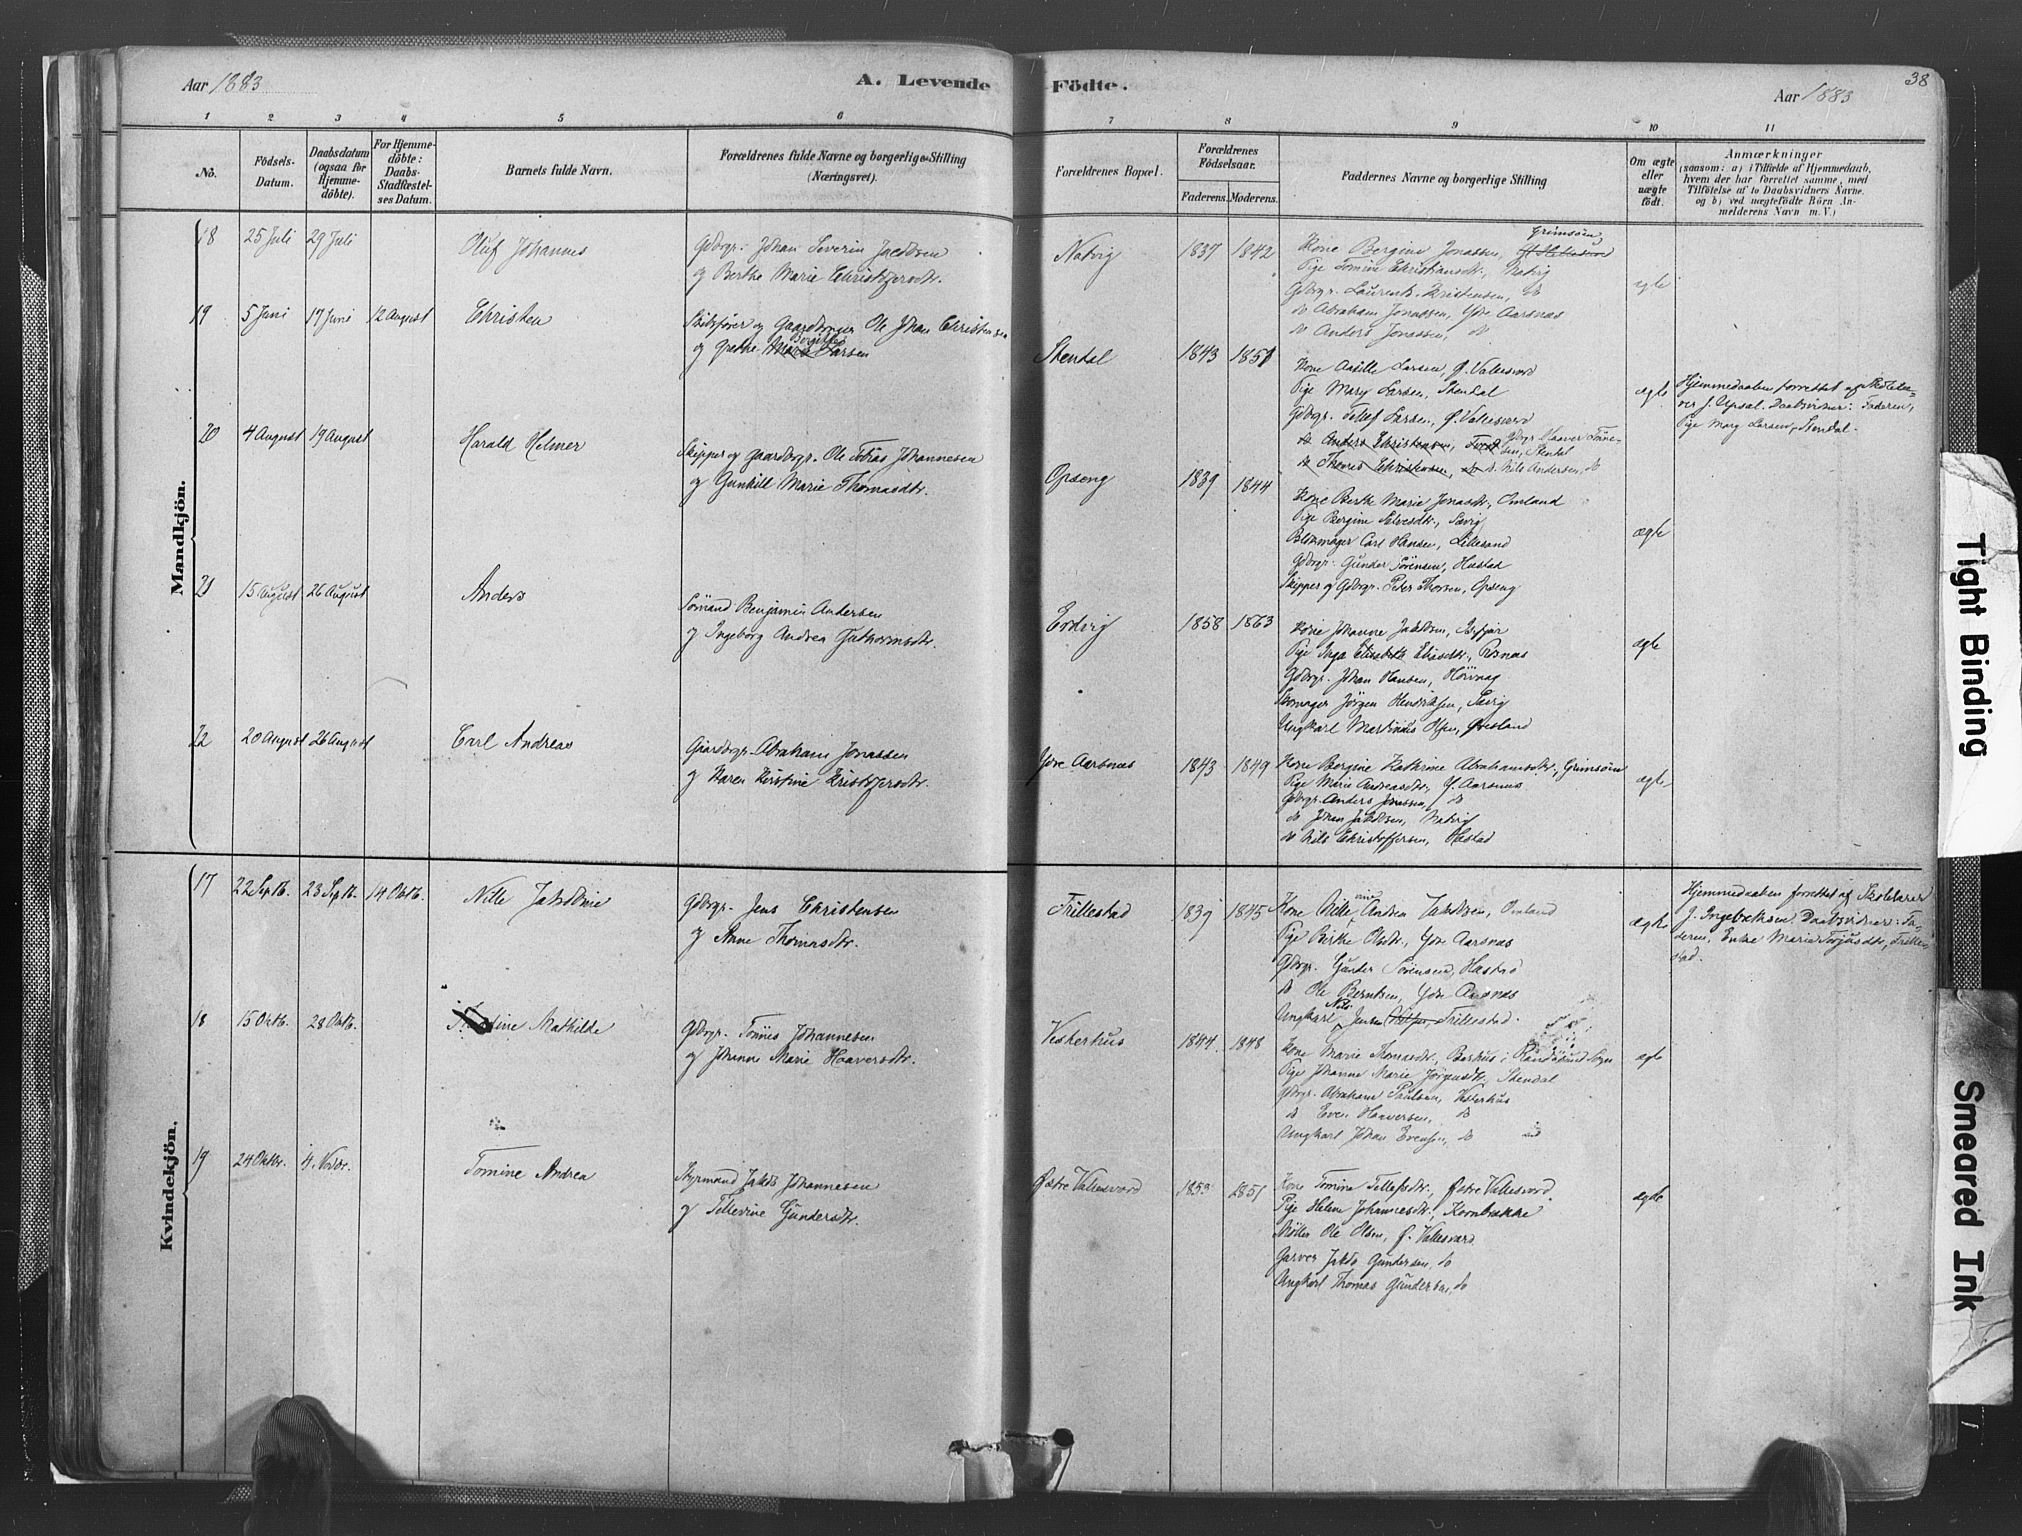 Aar 1883
A. Levende
Födte.
Aar 1883
38
1 2 3 4 5 6 7 8 9 10 11
No.
Födsels-
Datum.
Daabsdatum
(ogsaa for
Hjemme-
döbte).
For Hjemme-
döbte:
Daabs-
Stadfæstel-
ses Datum.
Barnets fulde Navn.
Forældrenes fulde Navne og borgerlige Stilling
(Næringsvei).
Forældrenes Bopæl.
Forældrenes
Födselsaar.
Faderens. Moderens.
Faddernes Navne og borgerlige Stilling
Om ægte
eller
uægte
födt.
Anmærkninger
(saasom: a) i Tilfælde af Hjemmedaab,
hvem der har forrettet samme, med
Tilföielse af to Daabsvidners Navne,
og b) ved uægtefödte Börn An-
melderens Navn m. V.)
Mandkjön.
18 25 Juli 29 Juli
Oluf Johannes
Gdbrgr. Johan Severin Jacobsen
og Berthe Marie Christofersdtr.
Natvig 1837 1842
Grimsøen
Kone Bergine Jonassen,
Pige Tomine Christiansdtr., Natvig
Gdbrgr. Laurents Kristensen, do
do Abraham Jonassen, Ydre Aarsnæs
do Anders Jonassen, do
ægte
19 5 Juni 17 Juni 12 August
Christen
Skibsfører og Gaardbruger Ole Johan Christensen
og Grethe Marie Larsen
Stendal 1843 1851
Kone Aasille Larsen, Ø. Vallesværd
Pige Mary Larsen, Stendal
Gdbrgr. Tellef Larsen, Ø. Vallesværd
do Anders Christensen, Gdbrgr. Haaver Tønne-
sen, Stendal
do Thomas Christensen, do do Nils Andersen, do
ægte
Hjemmedaaben forrettet af Skolelæ-
rer J. Upsal. Daabsvidner: Faderen,
Pige Mary Larsen, Stendal.
20 4 August 19 August
Harald Helmer
Skipper og Gaardbrgr. Ole Tobias Johannesen
og Gunhill Marie Thomasdtr.
Opseng 1839 1844
Kone Berthe Marie Jonasdtr., Omland
Pige Bergine Salvesdtr., Sævig
Blikmager Carl Hansen, Lillesand
Gdbrgr. Gunder Sörensen, Hæstad
Skipper og Gdbrgr. Peter Thorsen, Opseng
ægte
21 15 August 26 August
Anders
Sömand Benjamin Andersen
og Ingeborg Andrea Guthormsdtr.
Ersvig 1858 1863
Kone Johanne Jakobsen,
Pige Inga Elisabeth Eliasdtr., Rosnæs
Gdbrgr. Johan Hansen, Hövnag
Skomager Jørgen Hendriksen, Sævig
Ungkarl Martinius Olsen, Øvsland
ægte
22 20 August 26 August
Carl Andreas
Gaardbrgr. Abraham Jonassen
og Karen Kirstine Kristofersdtr.
Ydre Aarsnæs 1843 1849
Kone Bergine Kathrine Abrahamsdtr., Grimsøen
Pige Marie Andreasdtr., Y. Aarsnæs
Gdbrgr. Anders Jonassen, do
do Johan Jakobsen, Natvig
do Nils Christoffersen, Hæstad
ægte
Kvindekjön.
17 22 Septb. 23 Septb. 14 Oktb.
Nille Jakobine
Gdbrgr. Jens Christensen
og Anne Thomasdtr.
Trillestad 1839 1845
Kone Nille Andrea Jakobsen, Omland
Pige Birthe Olsdtr., Ydre Aarsnæs
Gdbrgr. Gunder Sörensen, Hæstad
do Ole Berntsen, Ydre Aarsnæs
Nils
Ungkarl Jensen Trillestad.
ægte
Hjemmedaaben forrettet af Skolelærer
J. Ingebretsen Daabsvidner: Fa-
deren, Enke Marie Terjusdtr., Trille-
stad.
18 15 Oktb. 28 Oktb.
Mathilde
Gdbrgr. Tönnes Johannesen
og Johanne Marie Haaversdtr.
Vesterhus 1844 1848
Kone Marie Thomasdtr., Berhus i Randøsund Sogn
Pige Johanne Marie Jørgensdtr., Stendal
Gdbrgr. Abraham Paulsen, Vesterhus
do Even Haaversen, do
Ungkarl Johan Evensen, do
ægte
19 24 Oktbr. 4. Novbr.
Tomine Andrea
Styrmand Jakob Johannesen
og Tellevine Gundersdtr.
Østre Vallesværd 1853 1851
Kone Tomine Tellefsdtr., Østre Vallesværd
Pige Helene Johannesdtr., Kornbrække
Møller Ole Olsen, Ø. Vallesværd
Garver Jakob Gundersen, do
Ungkarl Thomas Gundersen, do
ægte
Tight Binding
Smeared Ink